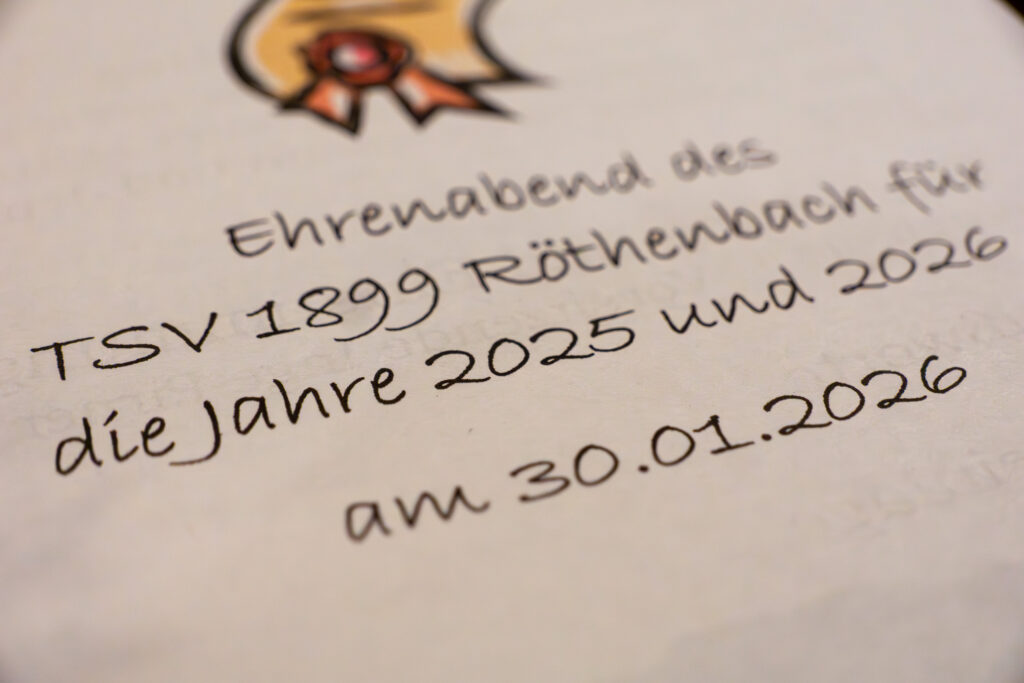 Ehrenabend des
TSV 1899 Röthenbach für
die Jahre 2025 und 2026
am 30.01.2026